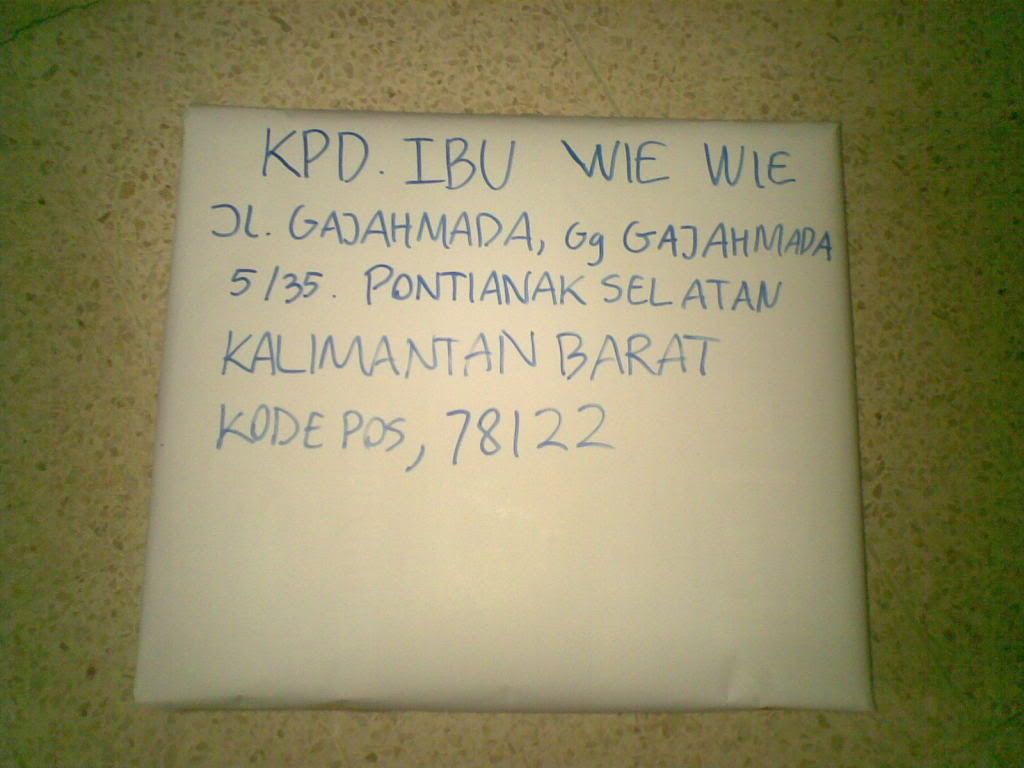 KPD. IBU WIE WIE
JL. GAJAHMADA, Gg GAJAHMADA
5/35. PONTIANAK SELATAN
KALIMANTAN BARAT
KODE POS, 78122